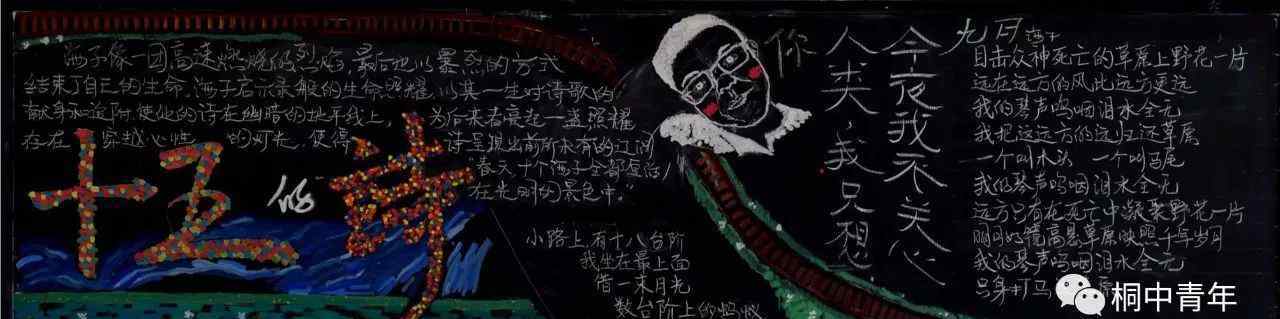 海子像一团高速燃烧的烈焰,最后他以暴烈的方式
结束了自己的生命,海子启示录般的生命照耀,以其一生对诗歌的
献身和追随,使他的诗在幽暗的地平线上, 为后来者亮起一盏照耀
存在 穿越心性 的灯光,使得 诗呈现出前所未有的辽阔
"春天十个海子全部复活/
在光明的景色中."
十五的诗
小路上,有十八台阶
我坐在最上面
借一束月光
数台阶上的蚂蚁
今夜我不关心
人类,我只想
你
九月 海子
目击众神死亡的草原上野花一片
远在远方的风比远方更远
我的琴声呜咽泪水全无
我把这远方的远归还草原
一个叫木头 一个叫马尾
我的琴声呜咽泪水全无
远方只有在死亡中凝聚野花一片
明月如镜高悬草原映照千年岁月
我的琴声呜咽泪水全无
只身打马
桐中青年